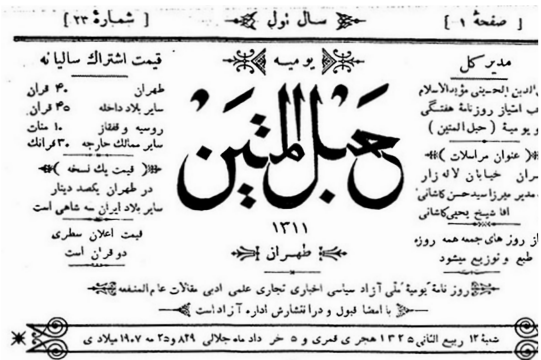 [ صفحهٔ ۱ ]
سال اول
[ شمارهٔ ۲۳ ]
مدیر کل
الدین الحسینی مؤیدالاسلام
امتیاز روزنامهٔ هفتگی
و یومیهٔ ( حبل المتین )
( عنوان مراسلات )
خیابان لاله زار
مدیر میرزا سید حسن کاشانی
اقا شیخ یحیی کاشانی
از روز های جمعه همه روزه
طبع و توزیع میشود
یومیه
حبل المتین
۱۳۱۱
طهران
قیمت اشتراك سالیانه
طهران ۴۰ قران
سایر بلاد داخله ۴۵ قران
روسیه و قفقاز ۱۰ منات
سایر ممالك خارجه ۳۰ فرانك
( قیمت یك نسخه )
در طهران یکصد دینار
سایر بلاد ایران سه شاهی است
قیمت اعلان سطری
دو قران است
روز نامهٔ یومیهٔ ملی آزاد سیاسی اخباری تجاری علمی ادبی مقالات عام المنفعه
با امضا قبول و در انتشارش اداره آزاد است
شنبهٔ ۱۲ ربیع الثانی ۱۳۲۵ هجری قمری و ۵ خرداد ماه جلالی ۸۲۹ و ۲۵ مه ۱۹۰۷ میلادی